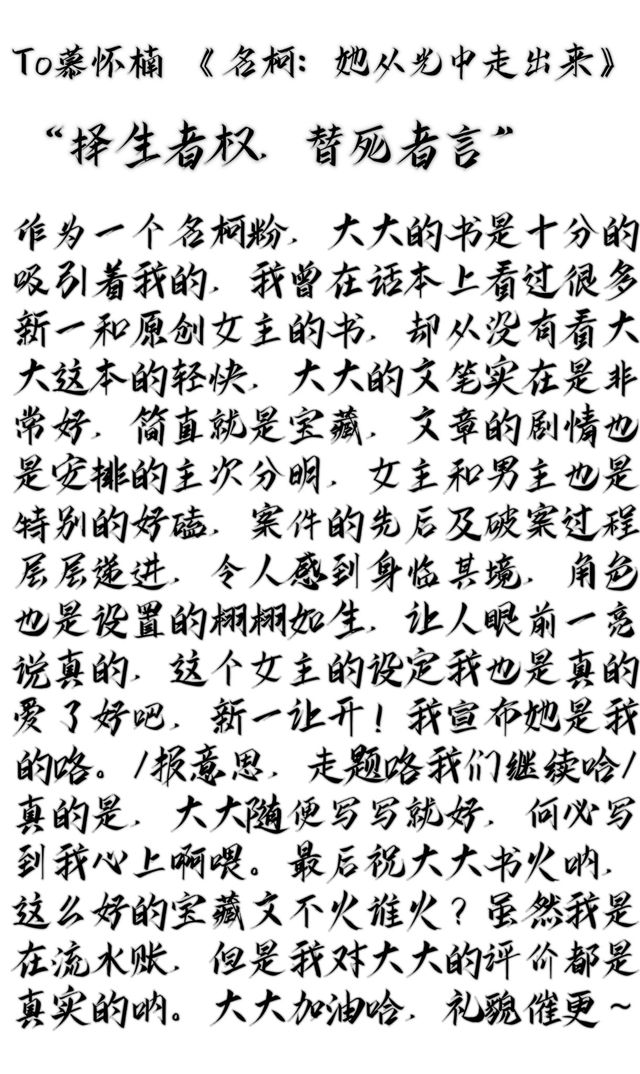 To慕怀楠 《名柯：她从光中走出来》
“择生者权，替死者言”
作为一个名柯粉，大大的书是十分的
吸引着我的，我曾在话本上看过很多
新一和原创女主的书，却从没有看大
大这本的轻快，大大的文笔实在是非
常好，简直就是宝藏，文章的剧情也
是安排的主次分明，女主和男主也是
特别的好磕，案件的先后及破案过程
层层递进，令人感到身临其境，角色
也是设置的栩栩如生，让人眼前一亮
说真的，这个女主的设定我也是真的
爱了好吧，新一让开！我宣布她是我
的咯。/报意思，走题咯我们继续哈/
真的是，大大随便写写就好，何必写
到我心上啊喂。最后祝大大书火呐，
这么好的宝藏文不火谁火？虽然我是
在流水账，但是我对大大的评价都是
真实的呐。大大加油哈，礼貌催更~